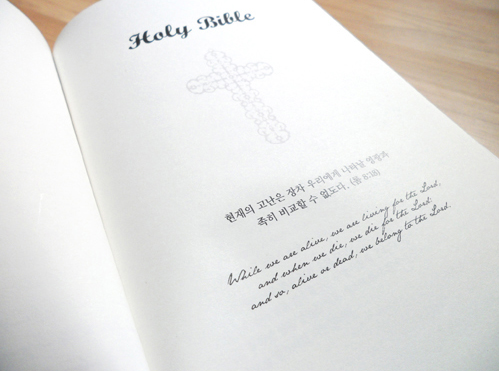 Holy Bible
현재의 고난은 장차 우리에게 나타날 영광과
족히 비교할 수 없도다. (롬 8:18)
While we are alive, we are living for the Lord,
and when we die, we die for the Lord.
and so, alive or dead, we belong to the Lord.